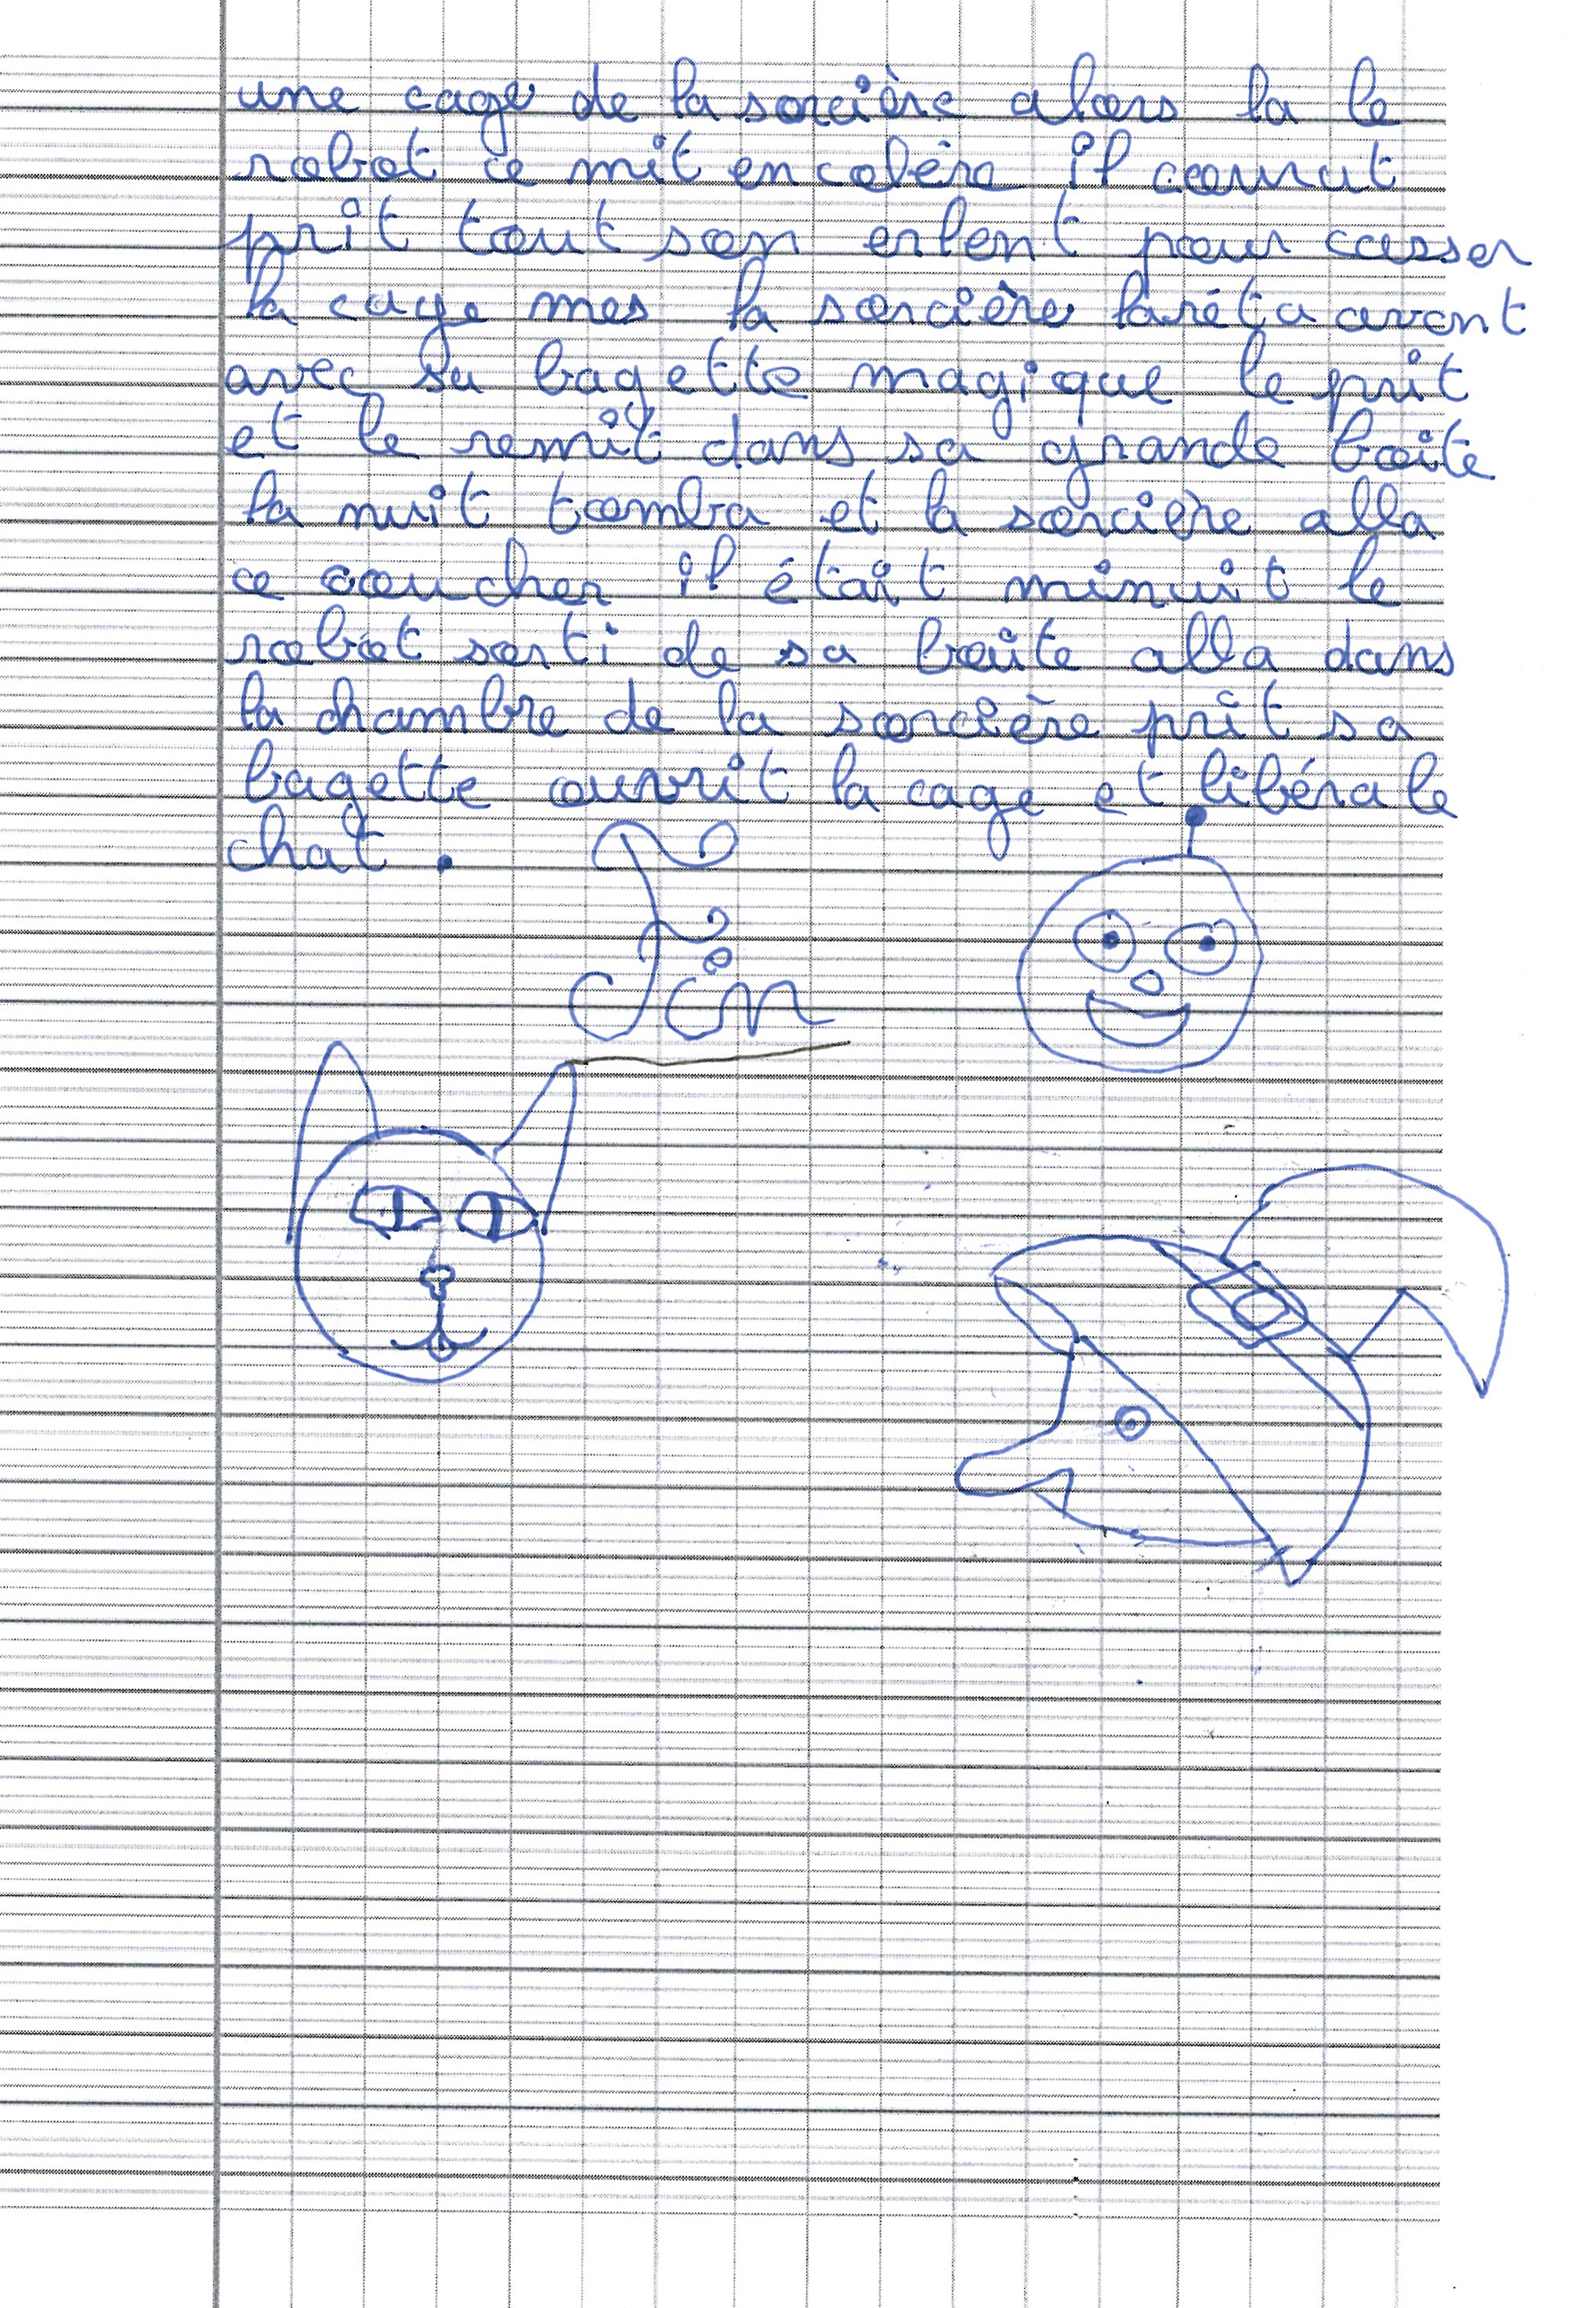 une cage de la sorcière alors la le
robot ce mit en colère il courut
prit tout son erlent pour casser
la cage mes la sorcière laréta avant
avec sa bagette magique le prit
et le remit dans sa grande boîte
la nuit tomba et la sorcière alla
ce coucher il était minuit le
robot sorti de sa boîte alla dans
la chambre de la sorcière prit sa
bagette ouvrit la cage et libéra le
chat.
Fin